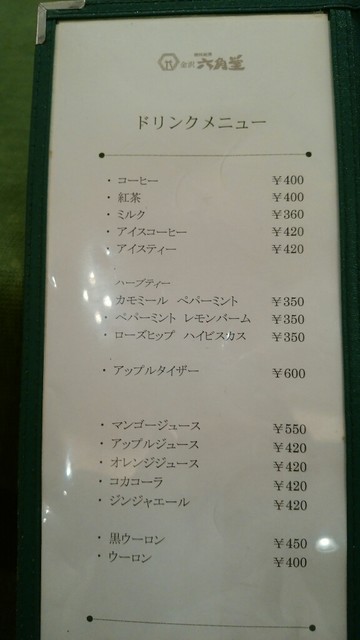 金沢 六角堂
ドリンクメニュー
・コーヒー ￥400
・紅茶 ￥400
・ミルク ￥360
・アイスコーヒー ￥420
・アイスティー ￥420
ハーブティー
・カモミール ペパーミント ￥350
・ペパーミント レモンバーム ￥350
・ローズヒップ ハイビスカス ￥350
・アップルタイザー ￥600
・マンゴージュース ￥550
・アップルジュース ￥420
・オレンジジュース ￥420
・コカコーラ ￥420
・ジンジャエール ￥420
・黒ウーロン ￥450
・ウーロン ￥400